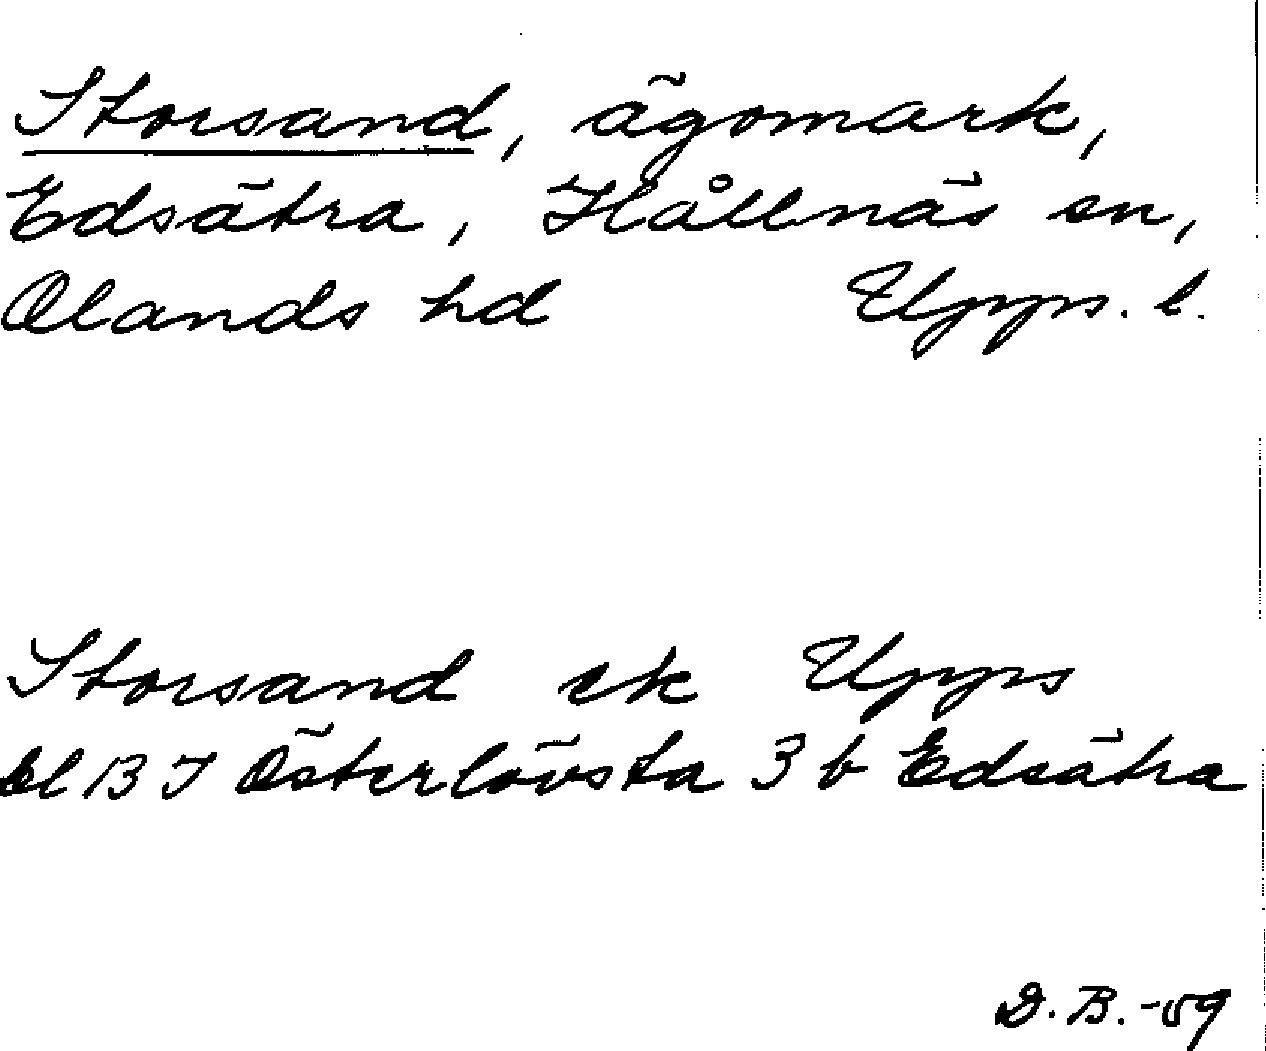 Storsand, ägomark,
Edsätra, Hållnäs sn,
Olands hd Upps. l.
Storsand ek Upps
Bl 13 I Österlövsta 3 b Edsätra
D. B. -59